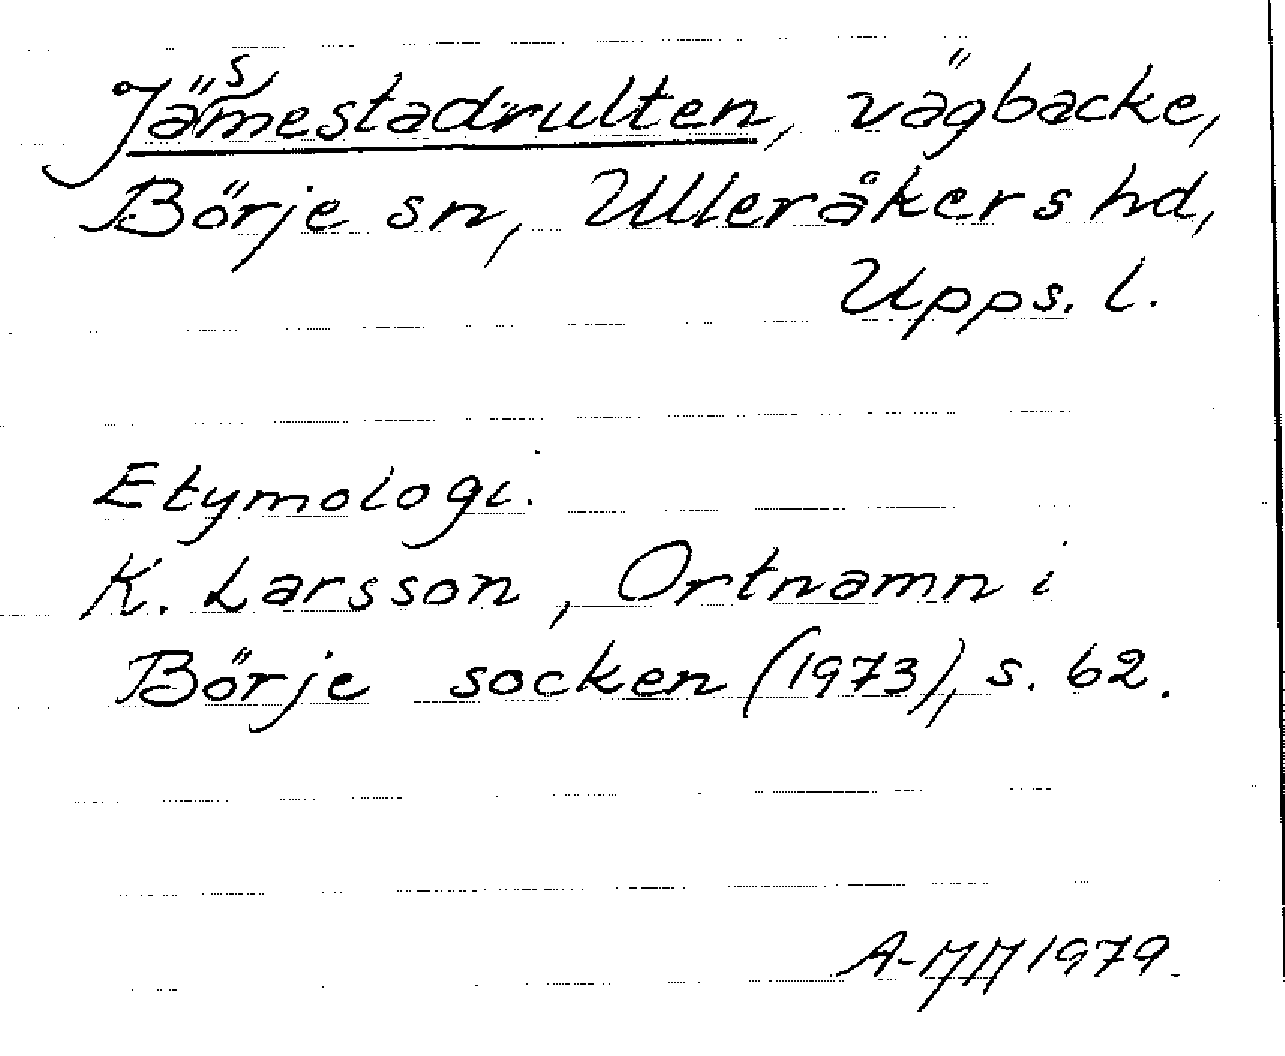 Jämestadrulten, vägbacke,
Börje sn, Ulleråkers hd,
Upps. l.
Etymologi:
K. Larsson, Ortnamn i
Börje socken (1973), s. 62.
1979.